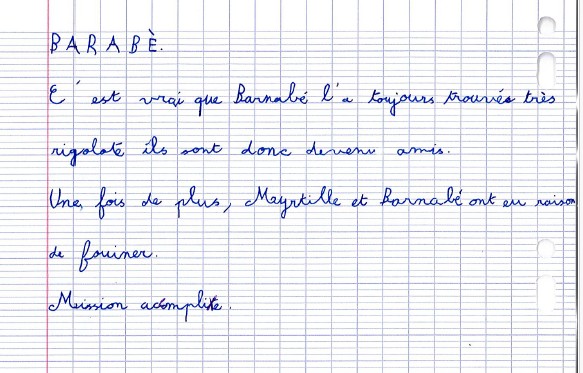 BARABÈ.
C'est vrai que Barnabé l'a toujours trouvée très
rigolote ils sont donc devenu amis.
Une fois de plus, Meyrtille et Barnabé ont eu raison
de fouiner.
Mission acomplite.